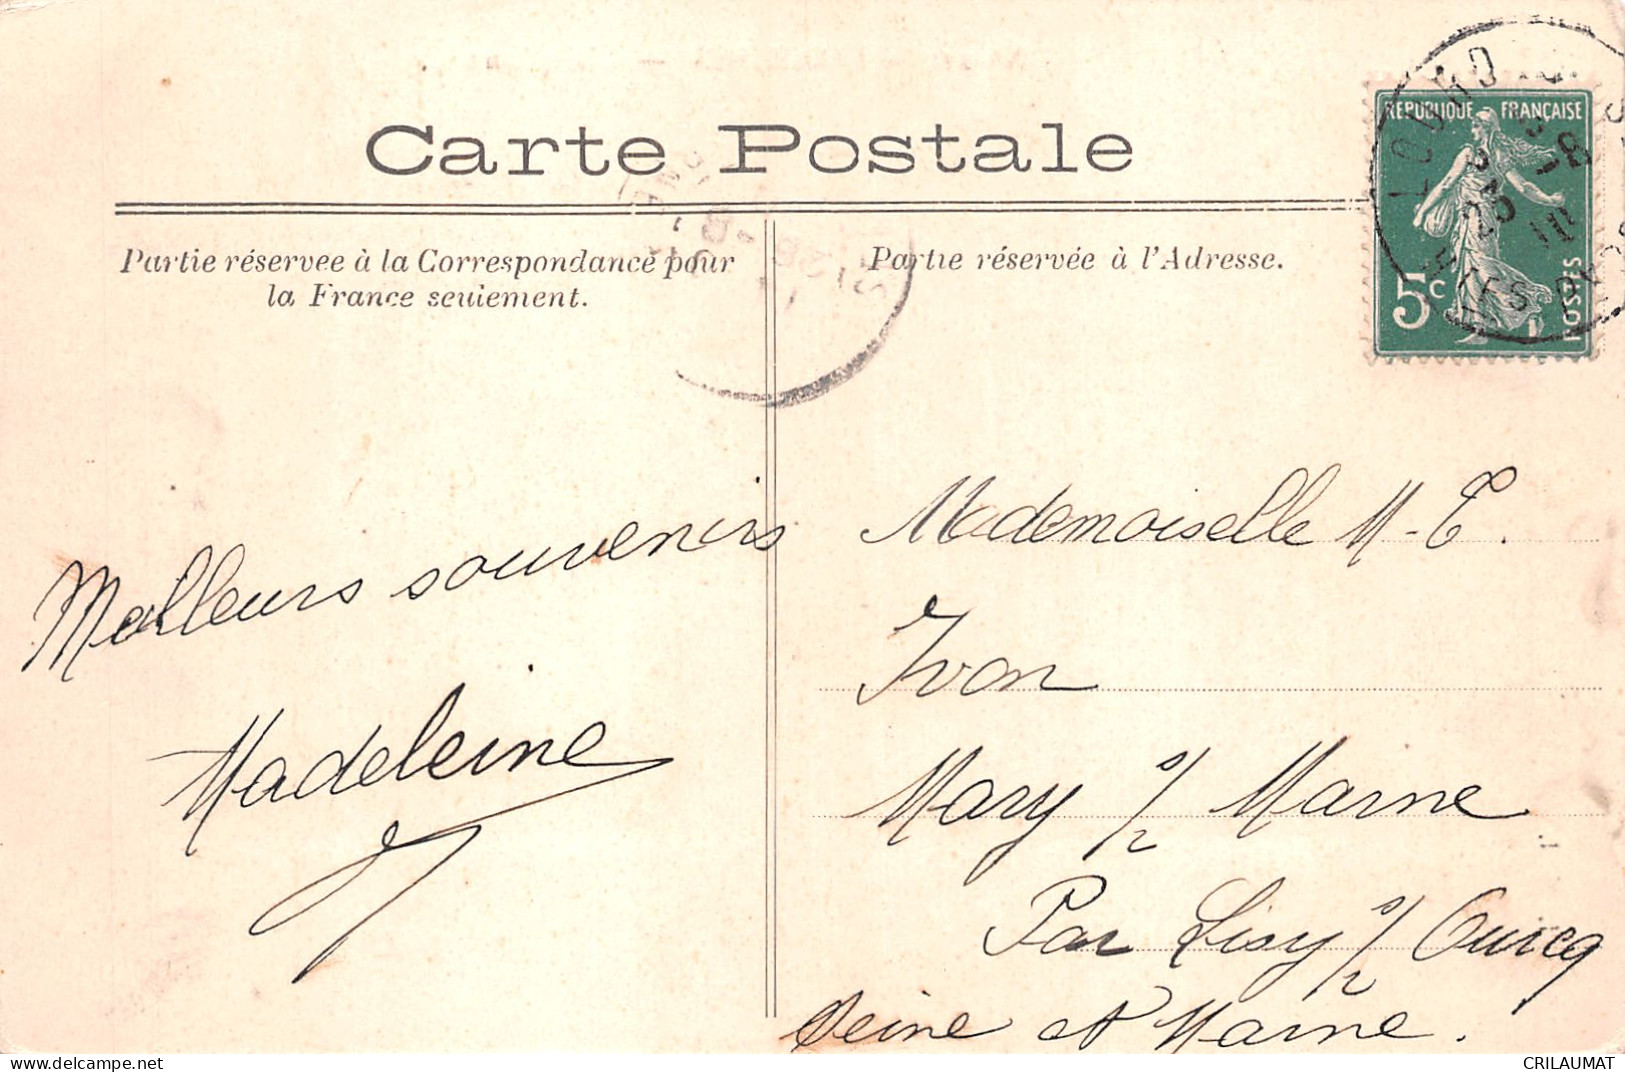 Carte Postale
Partie réservee à la Correspondance pour
la France seulement.
Partie réservée à l'Adresse.
REPUBLIQUE FRANÇAISE
5c
POSTES
Meilleurs souvenirs
Madeleine
Mademoiselle M-T.
Ivon
Mary s/ Marne
Par Lisy s/ Ourcq
Seine et Marne.
delcampe.net
CRILAUMAT